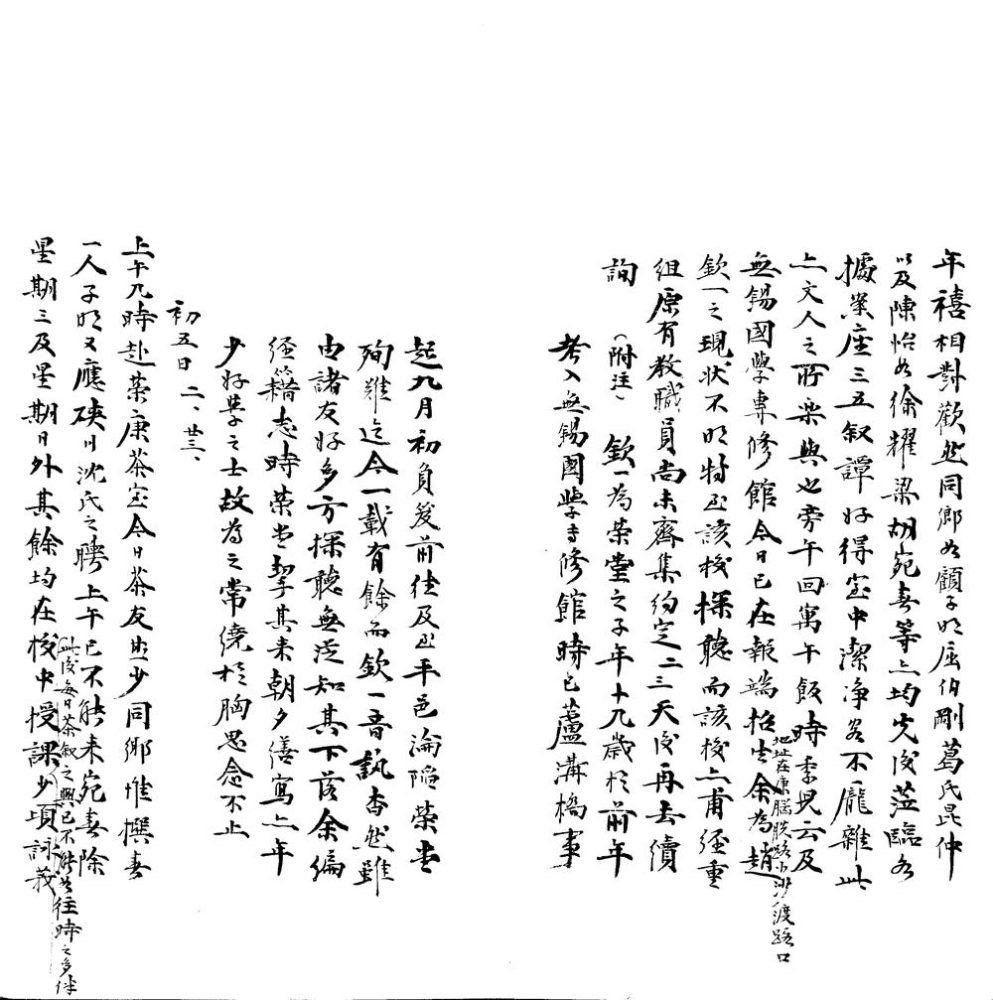 年禧相對歡然同鄉如顧子明屈伯剛葛氏昆仲
以及陳怡如徐耀梁胡宛春等亦均先後蒞臨各
據案座三五叙譚好得室中潔净客不龐雜此
亦文人之所樂與也旁午回寓午飯時李兒云及
地址在康腦脫路小沙渡路口
無錫國學專修館今日已在報端招生余為趙
欽一之現狀不明特至該校探聽而該校亦甫經重
組原有教職員尚未齊集約定二三天後再去續
詢 （附注） 欽一為荣堂之子年十九歲於前年
考入無錫國學专修館時已蘆溝橋事
起九月初負笈前往及至平邑淪陷荣堂
殉難迄今一載有餘而欽一音訊杳然雖
由諸友好多方探聽無從知其下落余编
经籍志時荣堂挈其来朝夕繕寫亦年
少好學之士故為之常繞於胸思念不止
初五日 二、廿三、
上午九時赴荣康茶室今日茶友甚少同鄉惟撰春
一人子明又應硤川沈氏之聘上午已不能来宛春除
此後每日茶叙之興已不能如往時之多伴
星期三及星期日外其餘均在校中授課少頃詠莪